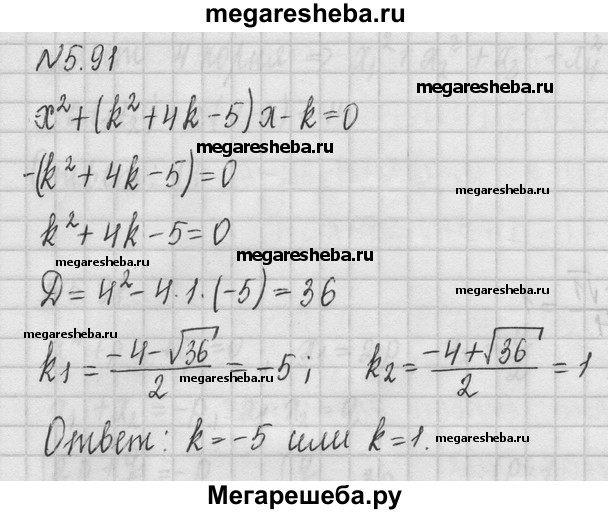 megaresheba.ru
N5.91
megaresheba.ru
x²+(k²+4k-5)x-k=0
megaresheba.ru
-(k²+4k-5)=0
megaresheba.ru
k²+4k-5=0
megaresheba.ru
megaresheba.ru
D=4²-4·1·(-5)=36
megaresheba.ru
megaresheba.ru
k₁=(-4-√36)/2=-5; k₂=(-4+√36)/2=1
megaresheba.ru
megaresheba.ru
Ответ: k=-5 или k=1.
megaresheba.ru
Мегарешеба.ру